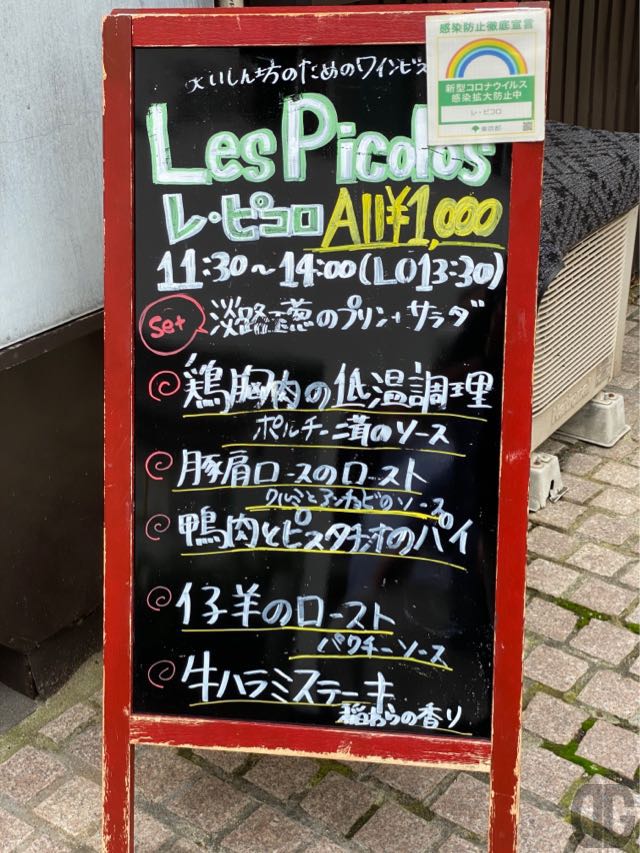 いしん坊のためのワインビス
Les Picolos
レ・ピコロ All ¥1,000
11:30〜14:00(LO13:30)
set 淡路玉葱のプリン+サラダ
鶏胸肉の低温調理
ポルチーニ茸のソース
豚肩ロースのロースト
クルミとアンチョビのソース
鴨肉とピスタチオのパイ
仔羊のロースト
パクチーソース
牛ハラミステーキ
稲わらの香り
感染防止徹底宣言
新型コロナウイルス
感染拡大防止中
レ・ピコロ
東京都
RG